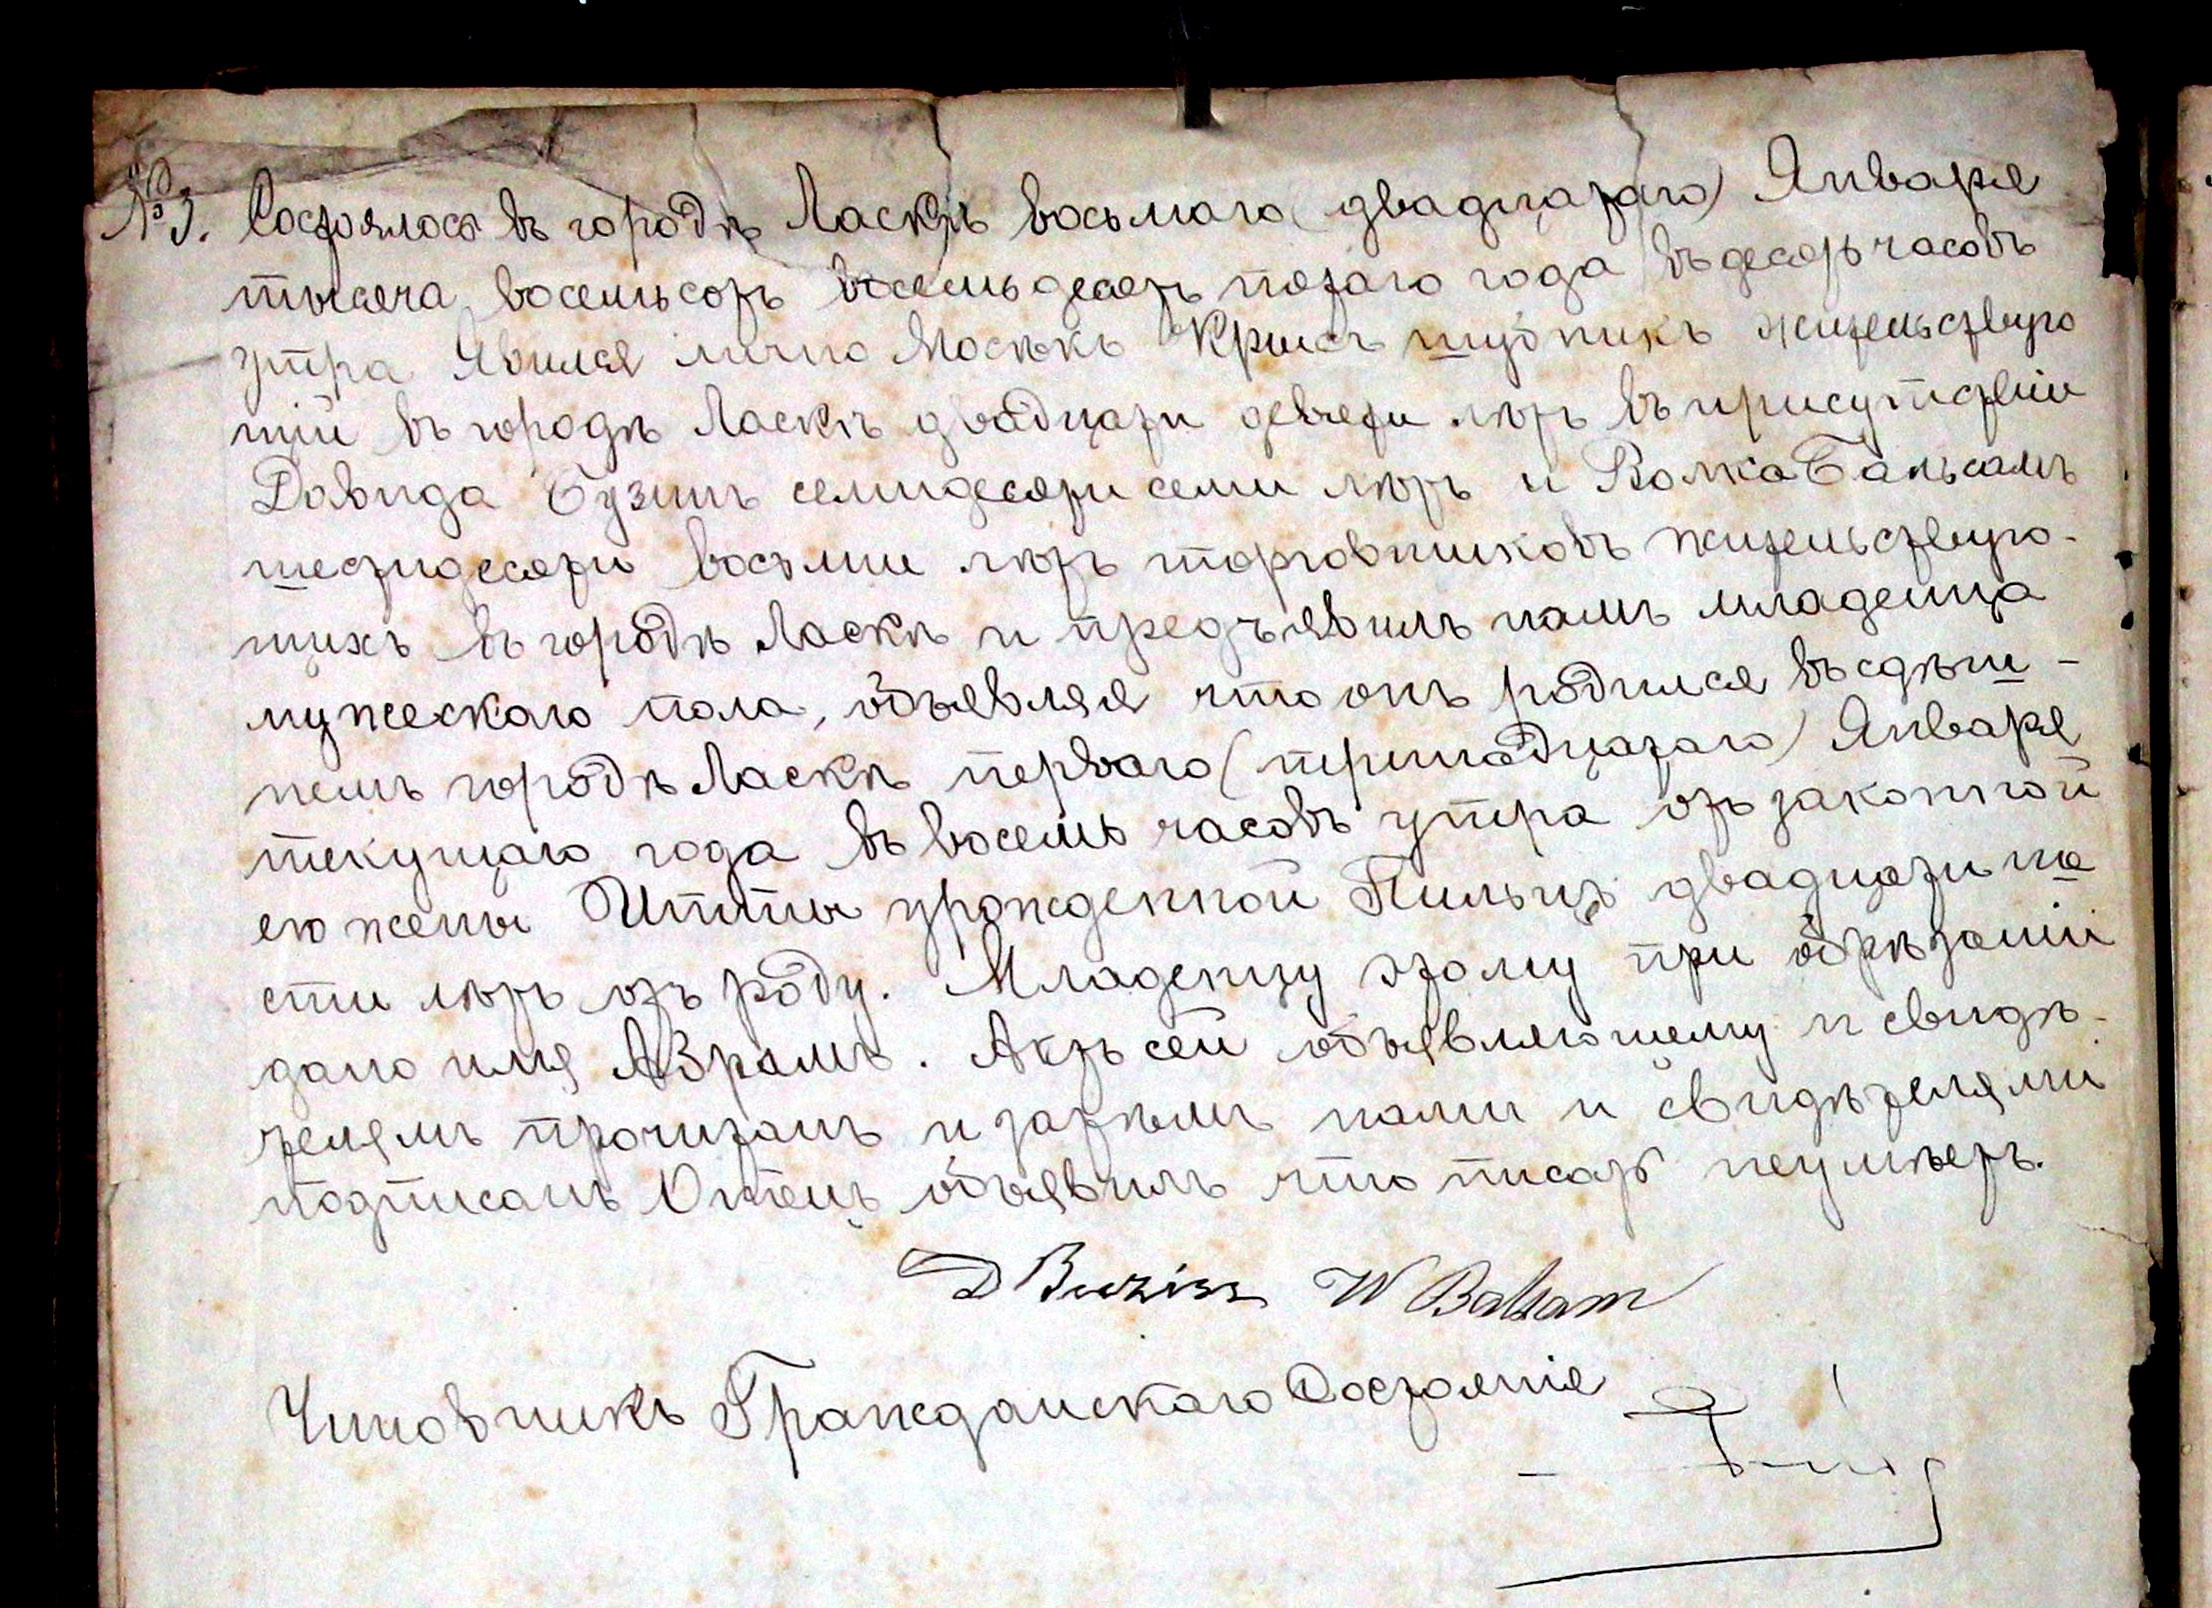 №3. Состоялось въ городѣ Ласкѣ восьмаго (двадцатаго) Января
тысяча восемьсотъ восемьдесятъ пятаго года въ десять часовъ
утра Явился лично Мосѣкъ Крысъ шубникъ жительствую
щій въ городѣ Ласкѣ двадцати девяти лѣтъ въ присутствіи
Давида Бузинъ семидесяти семи лѣтъ и Волка Бальсамъ
шестидесяти восьми лѣтъ торговниковъ жительствую-
щихъ въ городѣ Ласкѣ и предъявилъ намъ младенца
мужескаго пола, объявляя что онъ родился въ сдѣш-
немъ городѣ Ласкѣ перваго (тринадцатаго) Января
текущаго года въ восемь часовъ утра отъ законной
его жены Итты урожденной Пильцъ двадцати ше
сти лѣтъ отъ роду. Младенцу этому при обрѣзаніи
дано имя Абрамъ. Актъ сей объявляющему и свидѣ-
телямъ прочитанъ и затѣмъ нами и свидѣтелями
подписанъ Отецъ объявилъ что писать неумѣетъ.
D Buzin W Balsam
Чиновникъ Гражданскаго Состоянія